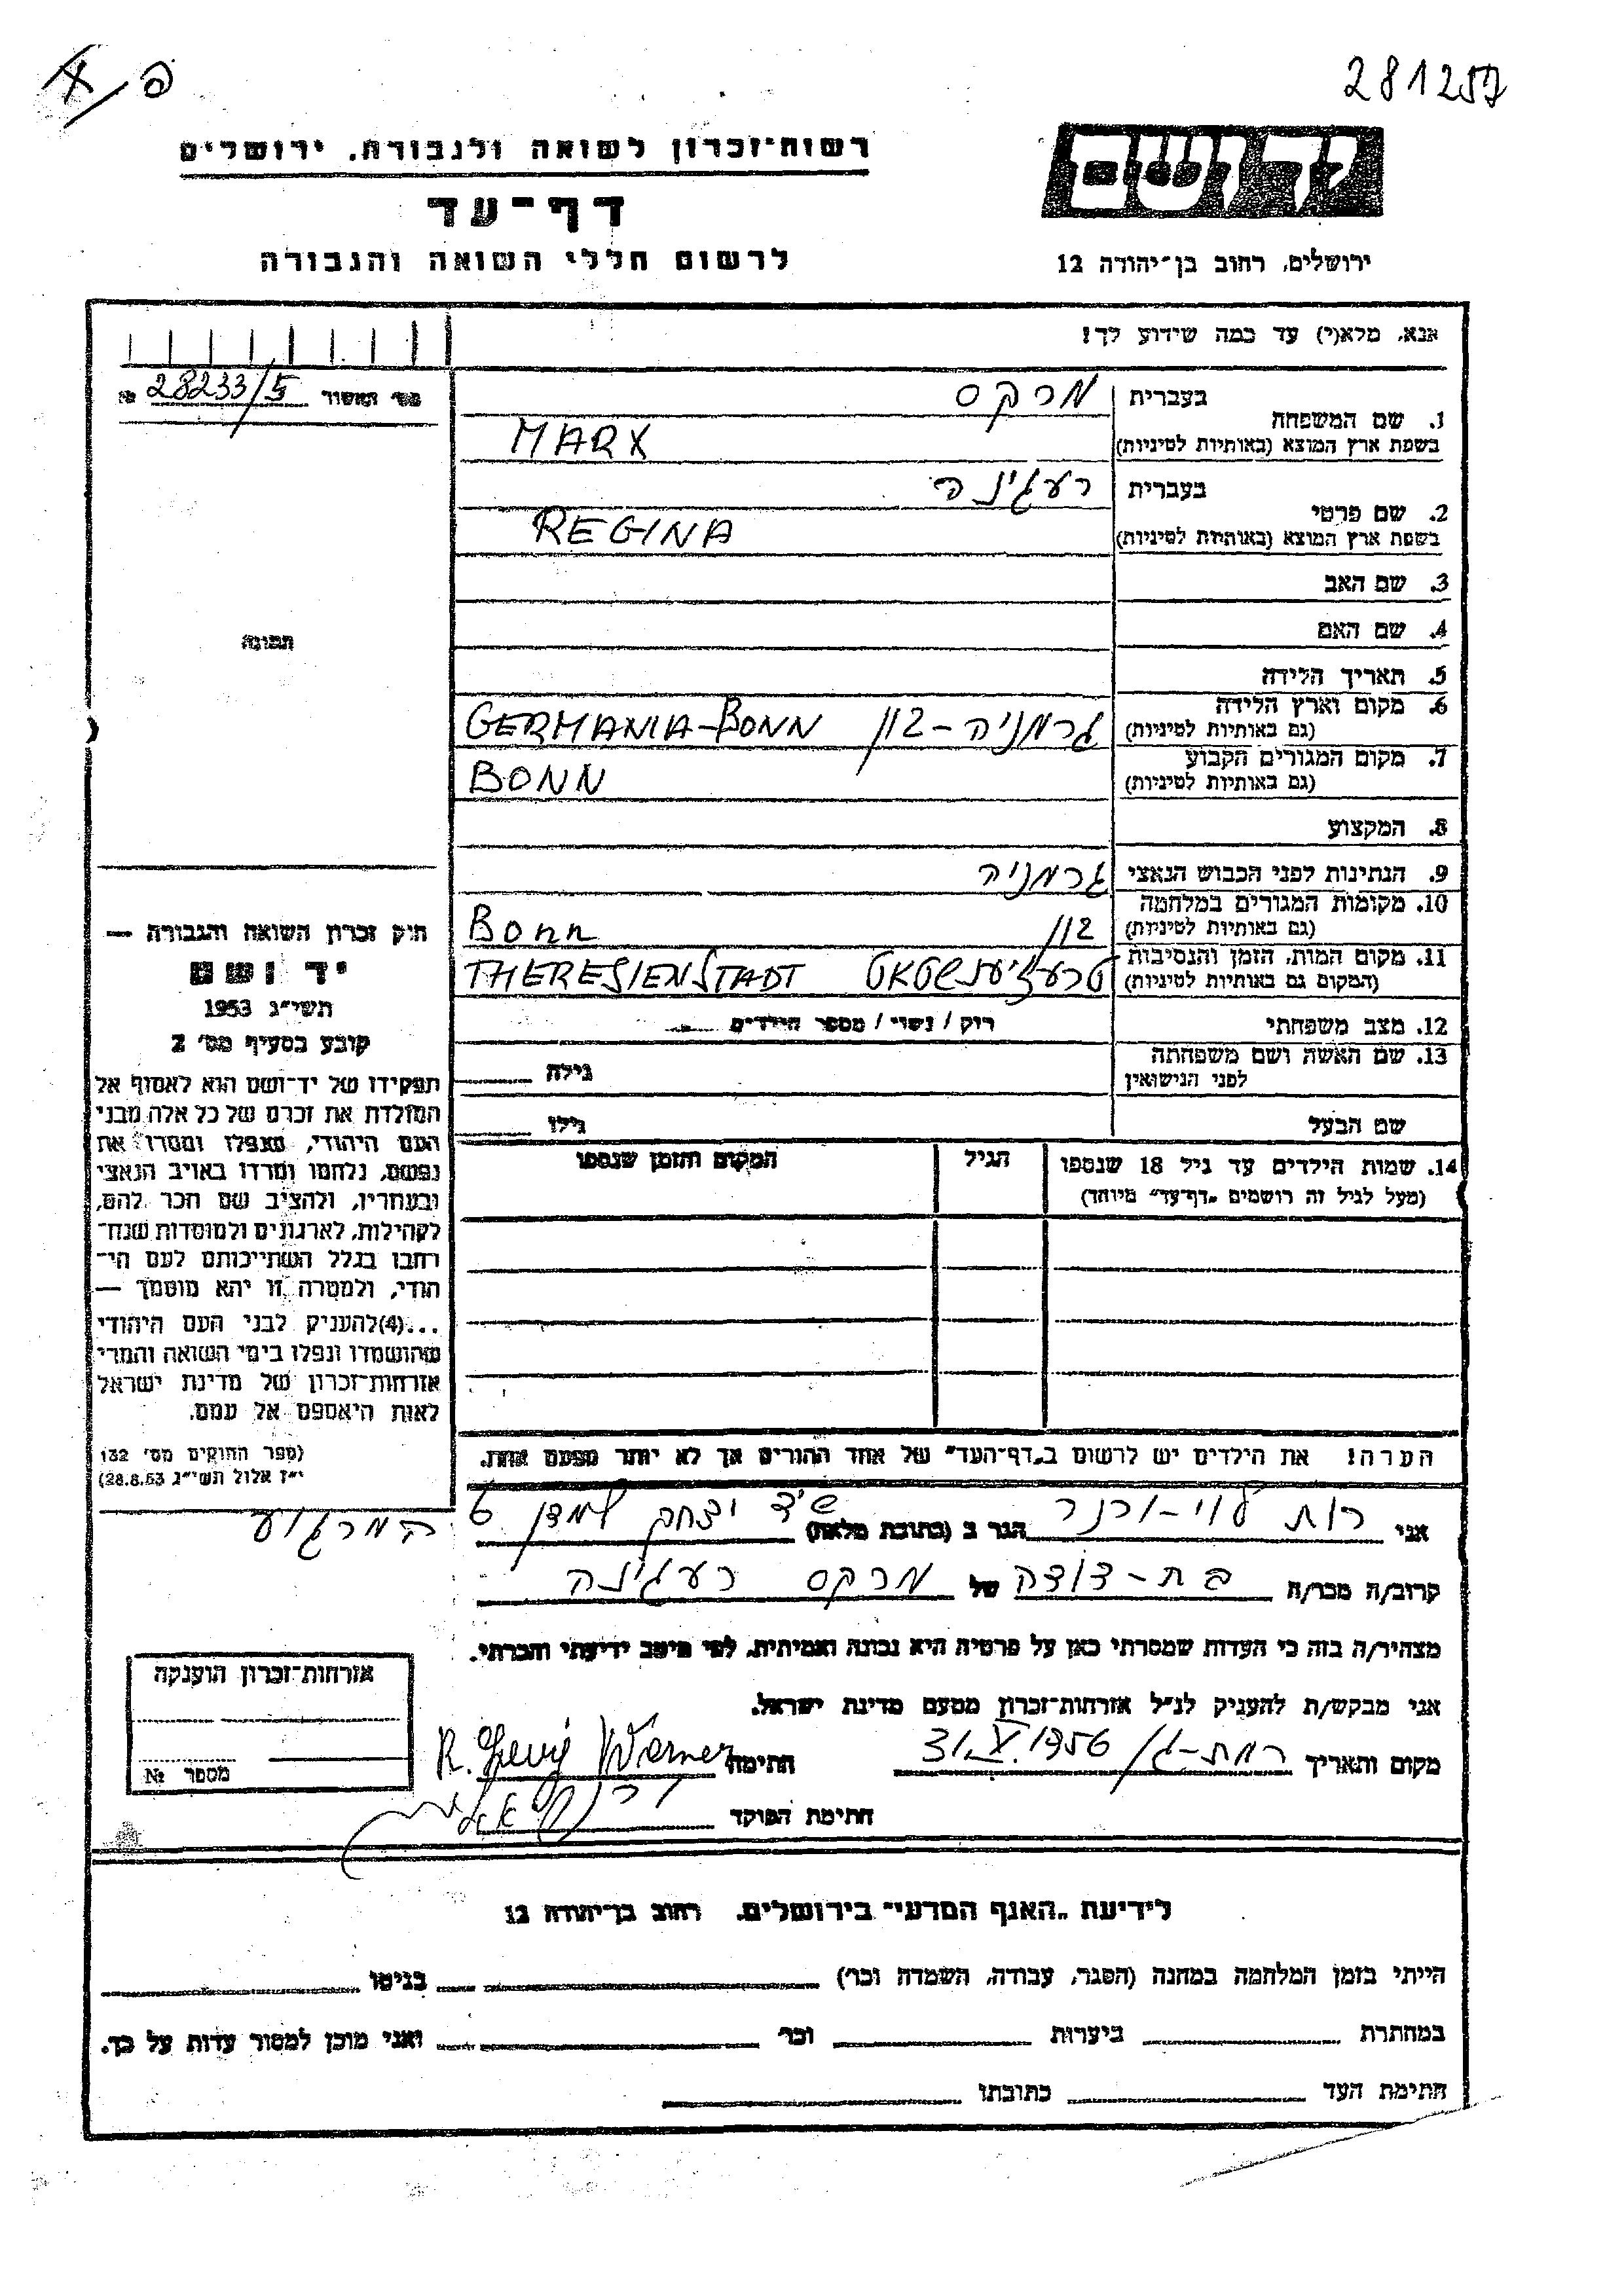 281257
רשות־זכרון לשואה ולגבורה, ירושלים
דף־עד
לרשום חללי השואה והגבורה
יד ושם
ירושלים, רחוב בן־יהודה 12
אנא, מלא(י) עד כמה שידוע לך!
מס' האשור 28233/5 №
1. שם המשפחה
בעברית מרקס
בשפת ארץ המוצא (באותיות לטיניות) MARX
2. שם פרטי
בעברית רעגינה
בשפת ארץ המוצא (באותיות לטיניות) REGINA
3. שם האב
4. שם האם
5. תאריך הלידה
6. מקום וארץ הלידה
(גם באותיות לטיניות) גרמניה - בון GERMANIA-BONN
7. מקום המגורים הקבוע
(גם באותיות לטיניות) BONN
8. המקצוע
9. הנתינות לפני הכבוש הנאצי גרמניה
10. מקומות המגורים במלחמה
(גם באותיות לטיניות) בון Bonn
11. מקום המות, הזמן והנסיבות
(המקום גם באותיות לטיניות) THERESIENSTADT
12. מצב משפחתי רוק / נשוי / מספר הילדים
13. שם האשה ושם משפחתה
לפני הנישואין גילה
שם הבעל גילו
14. שמות הילדים עד גיל 18 שנספו הגיל המקום והזמן שנספו
(מעל לגיל זה רושמים „דף־עד" מיוחד)
תמונה
חוק זכרון השואה והגבורה —
יד ושם
תשי"ג 1953
קובע בסעיף מס' 2
תפקידו של יד־ושם הוא לאסוף אל
המולדת את זכרם של כל אלה מבני
העם היהודי, שנפלו ומסרו את
נפשם, נלחמו ומרדו באויב הנאצי
ובעוזריו, ולהציב שם וזכר להם,
לקהילות, לארגונים ולמוסדות שנח־
רבו בגלל השתייכותם לעם הי־
הודי, ולמטרה זו יהא מוסמך —
...(4)להעניק לבני העם היהודי
שהושמדו ונפלו בימי השואה והמרי
אזרחות־זכרון של מדינת ישראל
לאות היאספם אל עמם.
(ספר החוקים מס' 132
י"ז אלול תשי"ג 28.8.53)
הערה! את הילדים יש לרשום ב„דף־העד" של אחד ההורים אך לא יותר מפעם אחת.
אני רות לוי-ורנר הגר ב (כתובת מלאה) יצחק למדן
קרוב/ה מכר/ה בת-דודה של מרקס רעגינה
מצהיר/ה בזה כי העדות שמסרתי כאן על פרטיה היא נכונה ואמיתית, לפי מיטב ידיעתי והכרתי.
אני מבקש/ת להעניק לנ"ל אזרחות־זכרון מטעם מדינת ישראל.
מקום ותאריך רמת-גן 31.X.1956 חתימה R. Levy Werner
חתימת הפוקד
אזרחות־זכרון הוענקה
מספר №
לידיעת „האגף המדעי" בירושלים, רחוב בן־יהודה 12
הייתי בזמן המלחמה במחנה (הסגר, עבודה, השמדה וכו') בגיטו
במחתרת ביערות וכו' ואני מוכן למסור עדות על כך.
חתימת העד כתובתו